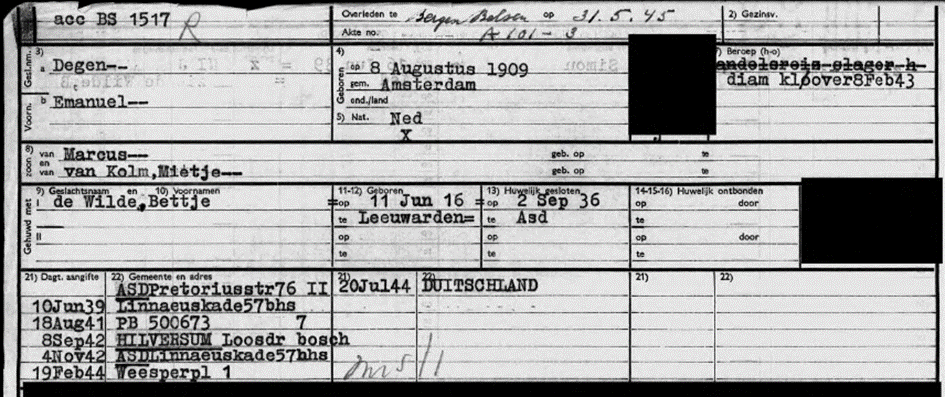 acc BS 1517 R
Overleden te Bergen Belsen op 31.5.45
Akte no. A 101-3
2) Gezinsv.
Gesl.nm. 3) a Degen--
Voorn. b Emanuel--
4) Geboren op 8 Augustus 1909
gem. Amsterdam
ond./land
5) Nat. Ned
X
) Beroep (h-o)
andelsreis slager h
diam kloover8Feb43
zoon 8) van Marcus-- geb. op te
en van van Kolm,Mietje-- geb. op te
Gehuwd met
9) Geslachtsnaam en 10) Voornamen
I de Wilde,Bettje
II
11-12) Geboren
=op 11 Jun 16 =
te Leeuwarden=
op
te
13) Huwelijk gesloten
op 2 Sep 36
te Asd
op
te
14-15-16) Huwelijk ontbonden
op door
te
op door
te
21) Dagt. aangifte 22) Gemeente en adres 21) 22) 21) 22)
ASDPretoriusstr76 II 20Jul44 DUITSCHLAND
10Jun39 Linnaeuskade57bhs
18Aug41 PB 500673 7
8Sep42 HILVERSUM Loosdr bosch
4Nov42 ASDLinnaeuskade57hhs
19Feb44 Weesperpl 1